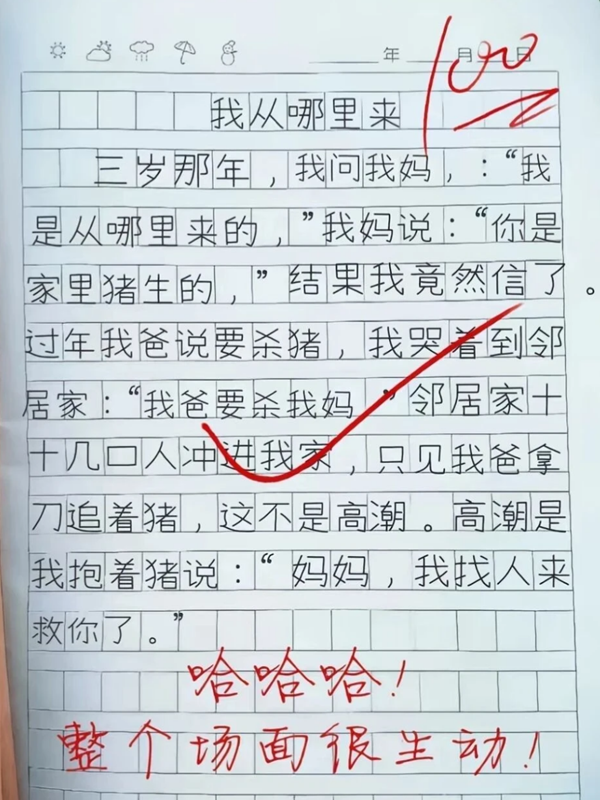 年 月 日
100
我从哪里来
三岁那年，我问我妈，：“我
是从哪里来的，”我妈说：“你是
家里猪生的，”结果我竟然信了。
过年我爸说要杀猪，我哭着到邻
居家：“我爸要杀我妈，”邻居家十
十几口人冲进我家，只见我爸拿
刀追着猪，这不是高潮。高潮是
我抱着猪说：“妈妈，我找人来
救你了。”
哈哈哈！
整个场面很生动！